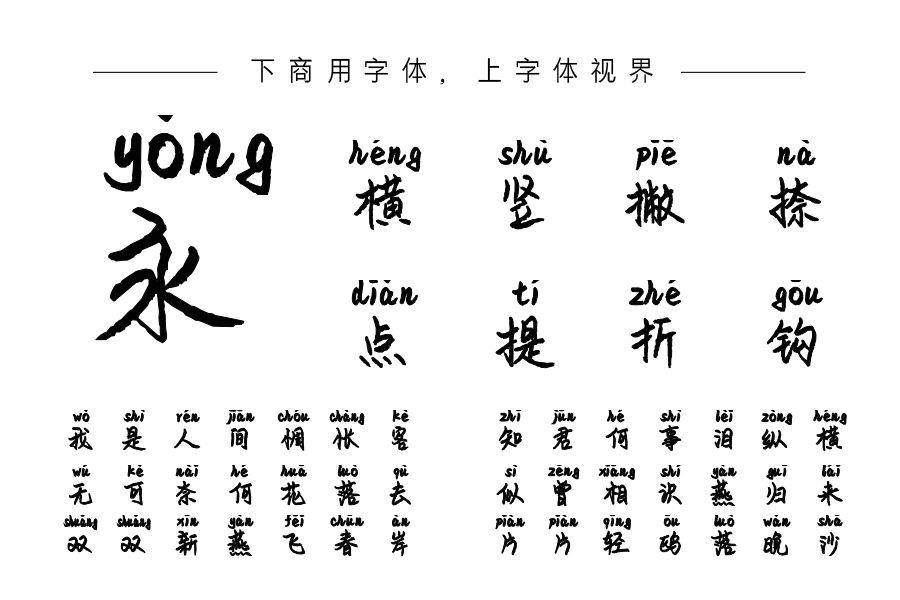 下商用字体, 上字体视界
yǒng
永
héng shù piē nà
横 竖 撇 捺
diǎn tí zhé gōu
点 提 折 钩
wǒ shì rén jiān chóu chàng kè
我 是 人 间 惆 怅 客
zhī jūn hé shì lèi zòng héng
知 君 何 事 泪 纵 横
wú kě nài hé huā luò qù
无 可 奈 何 花 落 去
sì céng xiāng shí yàn guī lái
似 曾 相 识 燕 归 来
shuāng shuāng xīn yàn fēi chūn àn
双 双 新 燕 飞 春 岸
piàn piàn qīng ōu luò wǎn shā
片 片 轻 鸥 落 晚 沙